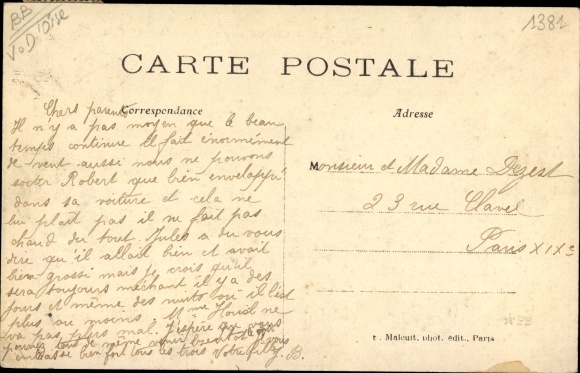 BB
V.D'Oise
1381
CARTE POSTALE
Correspondance
Adresse
Chers parents
Il n'y a pas moyen que le beau
temps continue il fait énormément
de vent aussi nous ne pouvons
sortir Robert que bien enveloppé
dans sa voiture et cela ne
lui plait pas il ne fait pas
chaud du tout. Jules a du vous
dire qu'il allait bien et avait
bien grossi mais je crois qu'il
sera toujours méchant il y a des
jours et même des nuits ou il l'est
plus au moins. Mme
va pas plus mal. J'espère que vous
pouvez tous de même
embrasse bien fort tous les trois Votre fille J. B.
Monsieur et Madame Dezest
23 rue Clavel
Paris XIXe
Malcuit, phot. édit., Paris